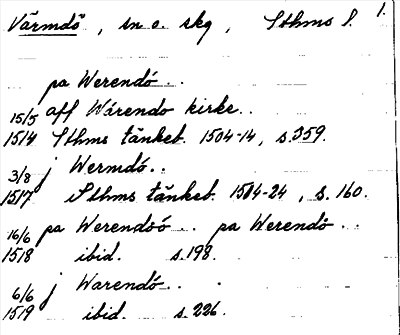 Värmdö, sn o. skg, Sthms l. 1.
pa Werendö..
15/5 aff Wärendo kirke..
1514 Sthms tänkeb. 1504-14, s. 359.
3/8 j Wermdö..
1517 Sthms tänkeb. 1514-24, s. 160.
16/6 pa Werendöö.. pa Werendö..
1518 ibid. s. 198.
6/6 j Warendö..
1519 ibid. s. 226.